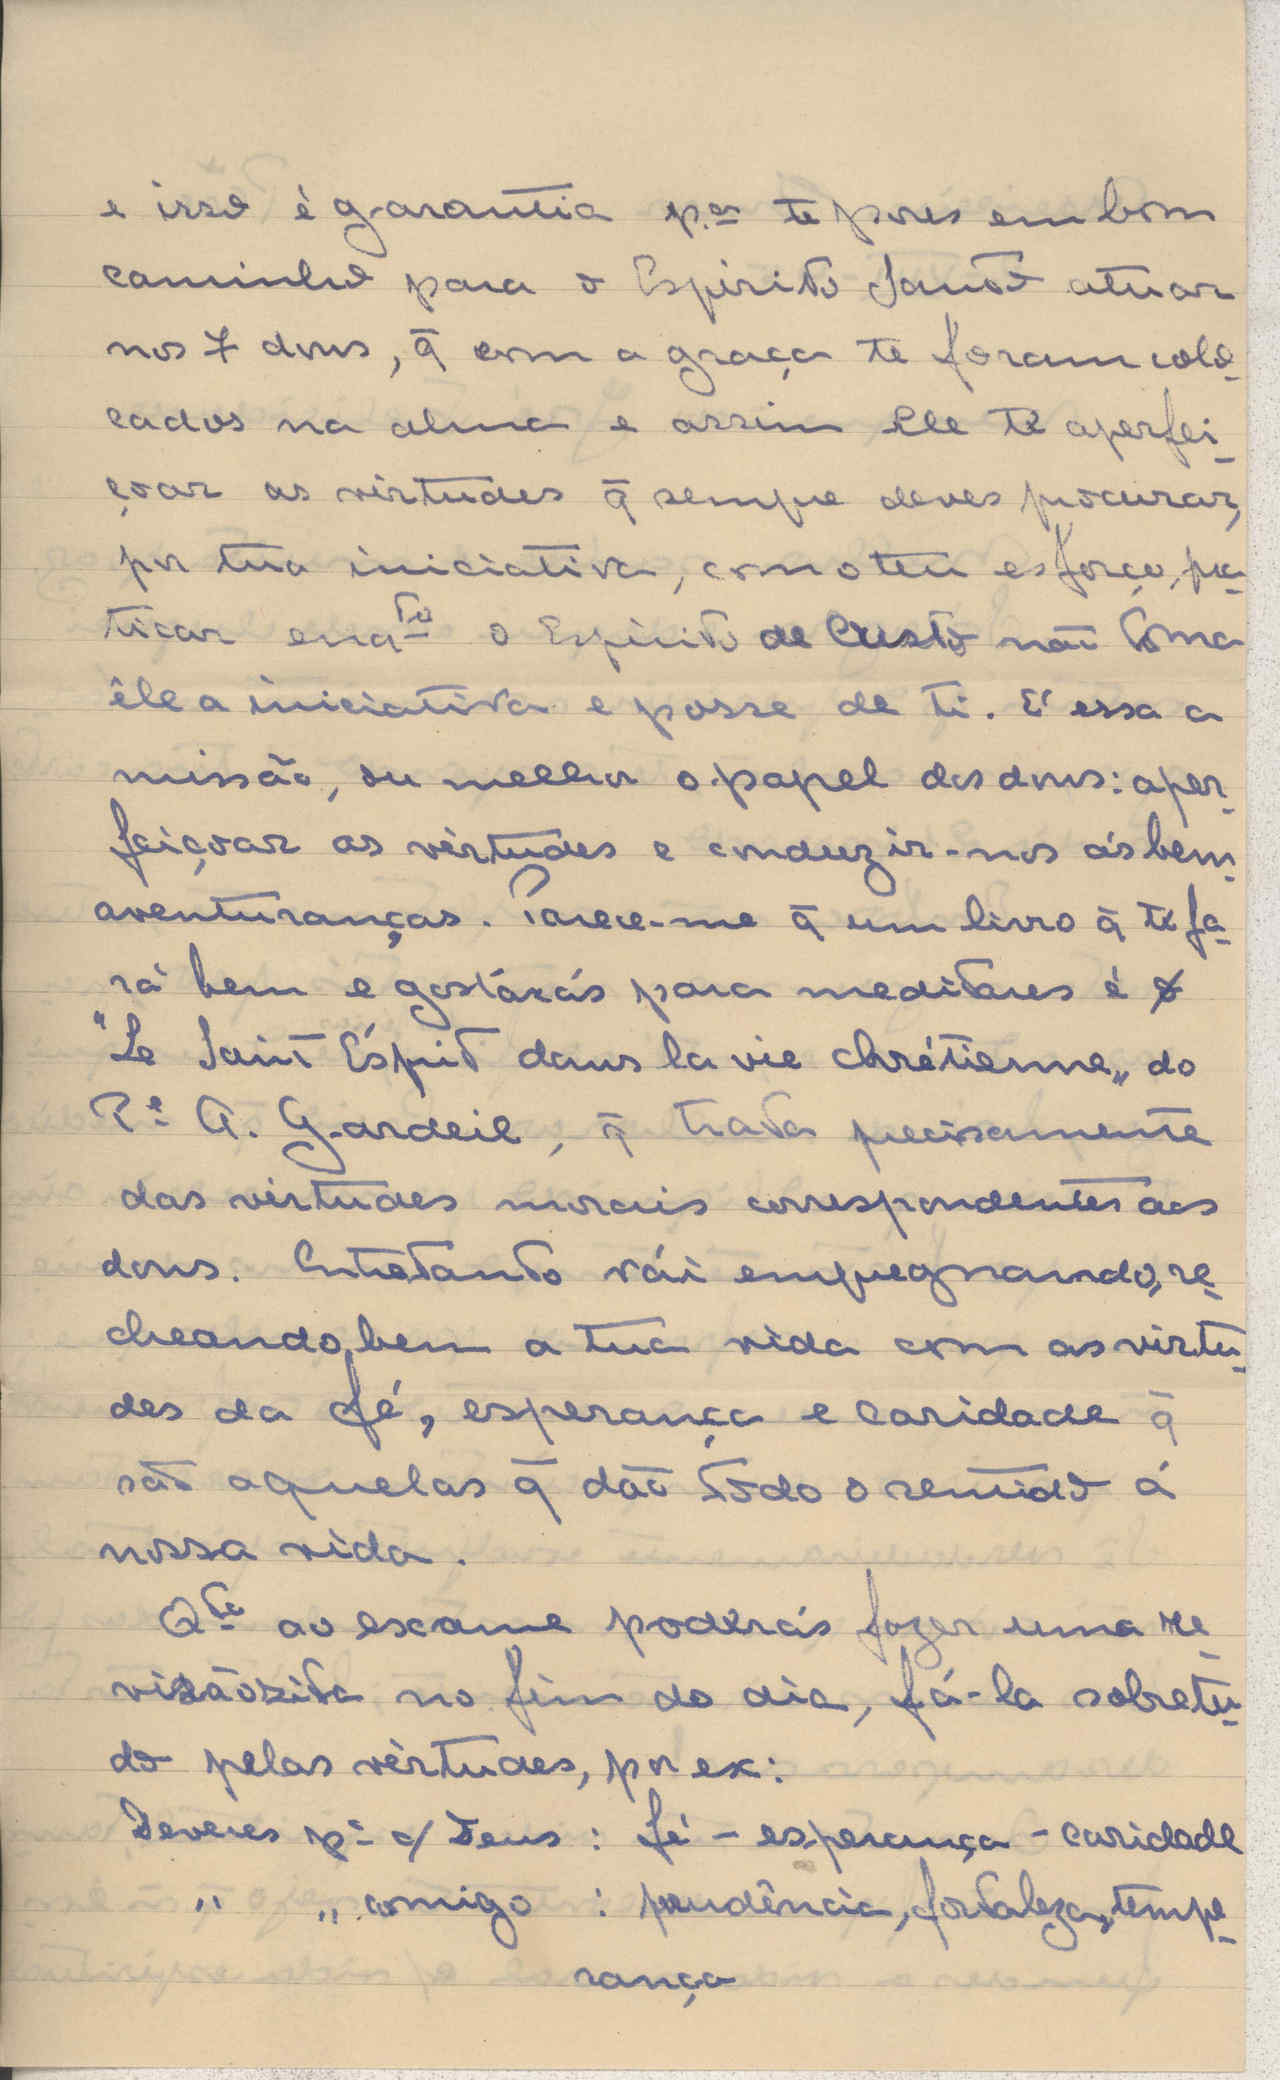 e isso é garantia p.ª te pores em bom
caminho para o Espirito Santo atuar
nos 7 dons, q̄ com a graça te foram colo-
cados na alma e assim Ele te aperfei-
çoar as virtudes q̄ sempre deves procurar,
por tua iniciativa, com o teu esforço, pra-
ticar enqto o Espirito de Cristo não toma
êle a iniciativa e posse de ti. É essa a
missão, ou melhor o papel dos dons: aper-
feiçoar as virtudes e conduzir-nos ás bem-
aventuranças. Parece-me q̄ um livro q̄ te fa-
rá bem e gostarás para meditares é o
"Le Saint Ésprit dans la vie chrétienne" do
Pe A. Gardeil, q̄ trata precisamente
das virtudes morais correspondentes aos
dons. Entretanto vái empregnando, re-
cheando, bem a tua vida com as virtu-
des da fé, esperança e caridade q̄
são aquelas q̄ dão tôdo o sentido á
nossa vida.
Qto ao exame poderás fazer uma re-
visãozita no fim do dia, fá-la sobretu-
do pelas virtudes, por ex:
Deveres pª c/ Deus : fé - esperança - caridade
" " comigo : prudência, fortaleza, tempe-
rança